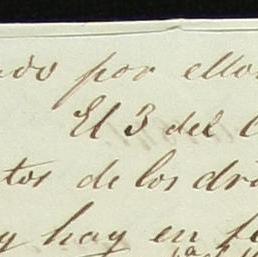 ndo por ellos
El 3 del C
tos de los dr
y hay en